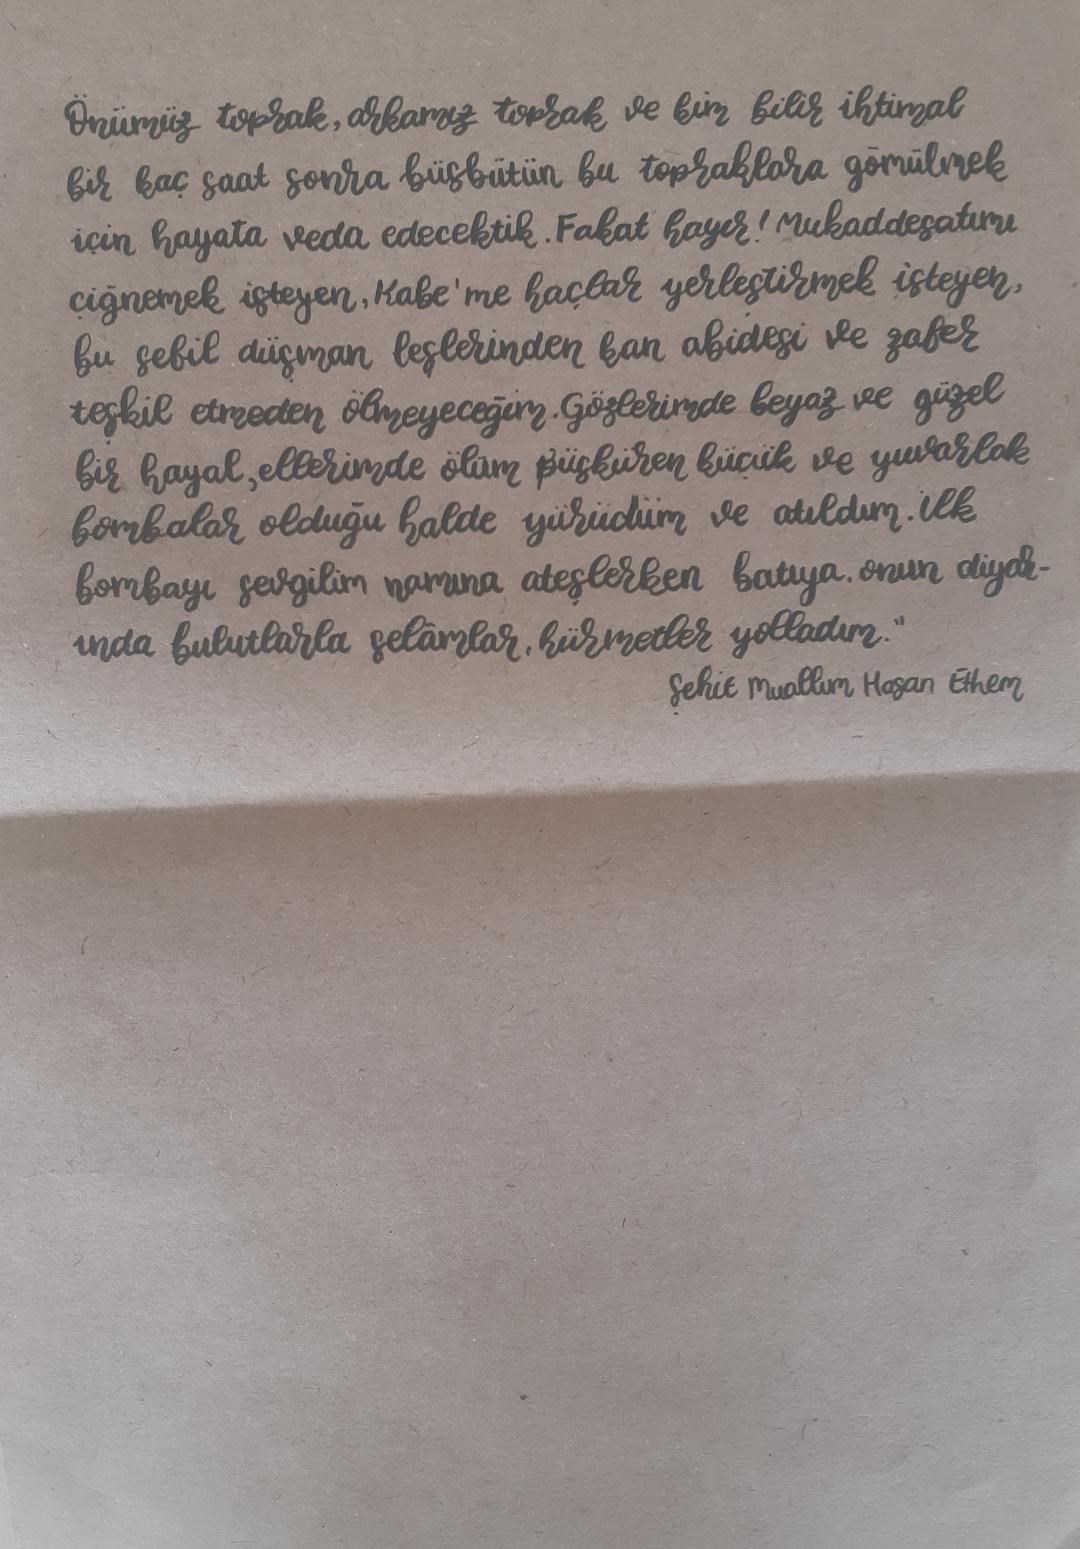 Önümüz toprak, arkamız toprak ve kim bilir ihtimal
bir kaç saat sonra büsbütün bu topraklara gömülmek
için hayata veda edecektik. Fakat hayır! Mukaddesatımı
çiğnemek isteyen, Kabe'me haçlar yerleştirmek isteyen,
bu sefil düşman leşlerinden kan abidesi ve zafer
teşkil etmeden ölmeyeceğim. Gözlerimde beyaz ve güzel
bir hayal, ellerimde ölüm püsküren küçük ve yuvarlak
bombalar olduğu halde yürüdüm ve atıldım. İlk
bombayı sevgilim namına ateşlerken batıya. onun diyar-
ında bulutlarla selâmlar, hürmetler yolladım."
Şehit Muallim Hasan Ethem